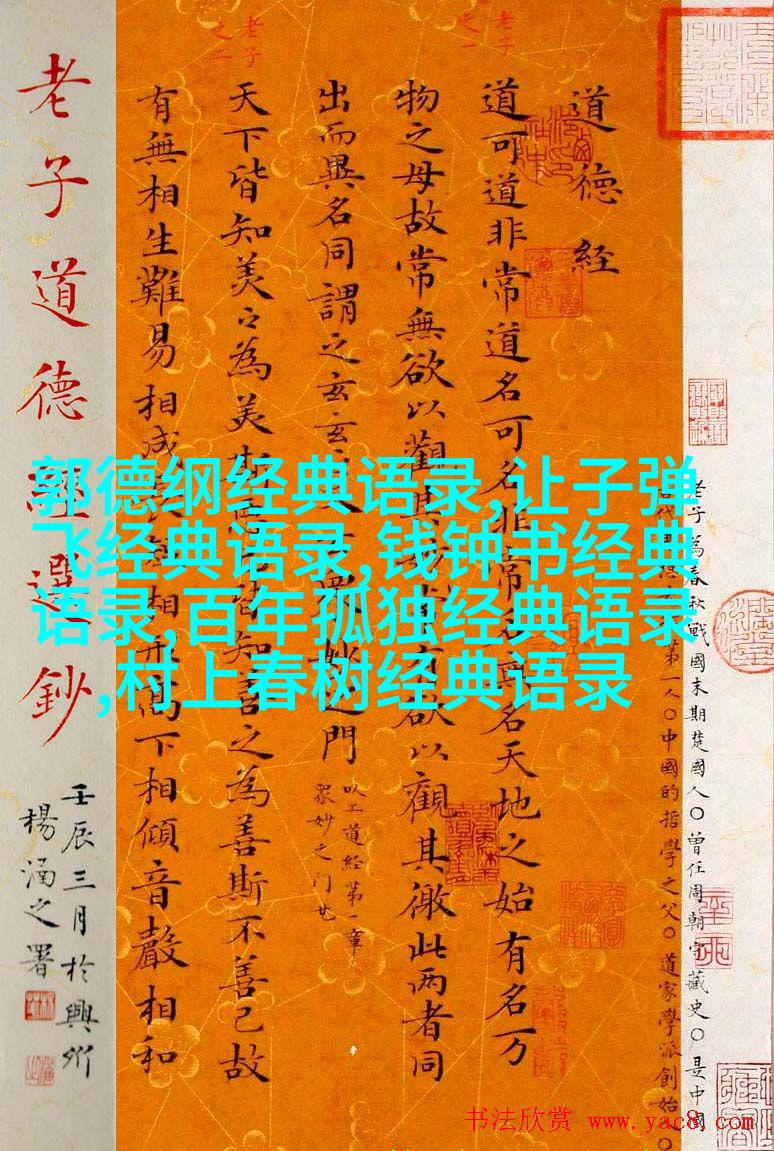 老子道德經選鈔
壬辰三月於興州
楊涵之署
老子
之一
老子
之二
道德經
道可道非常道名可名非常名無名天地之始有名万
物之母故常無欲以觀其妙常有欲以觀其徼此两者同
出而異名同謂之玄玄之又玄眾妙之門
以上道經第一章
天下皆知美〻為美斯惡已皆知善之為善斯不善已故
有無相生難易相成長短相形高下相傾音聲相和
老子為春秋戰國末期楚國人〇曾任周朝守藏史〇是中國
古代第一人〇中國的哲學之父〇道家學派創始〇
郭德纲经典语录,让子弹
飞经典语录,钱钟书经典
语录,百年孤独经典语录
,村上春树经典语录
书法欣赏 www.yac8.com